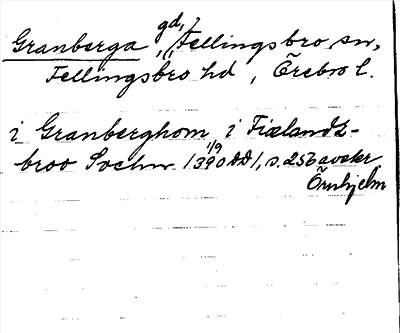 Granberga gd, Fellingsbro sn,
Fellingsbro hd, Örebro l.
i Granberghom i Fiælandz-
broo Sochn 1/9 1390 DD1, s. 256 avskr
Örnhjelm